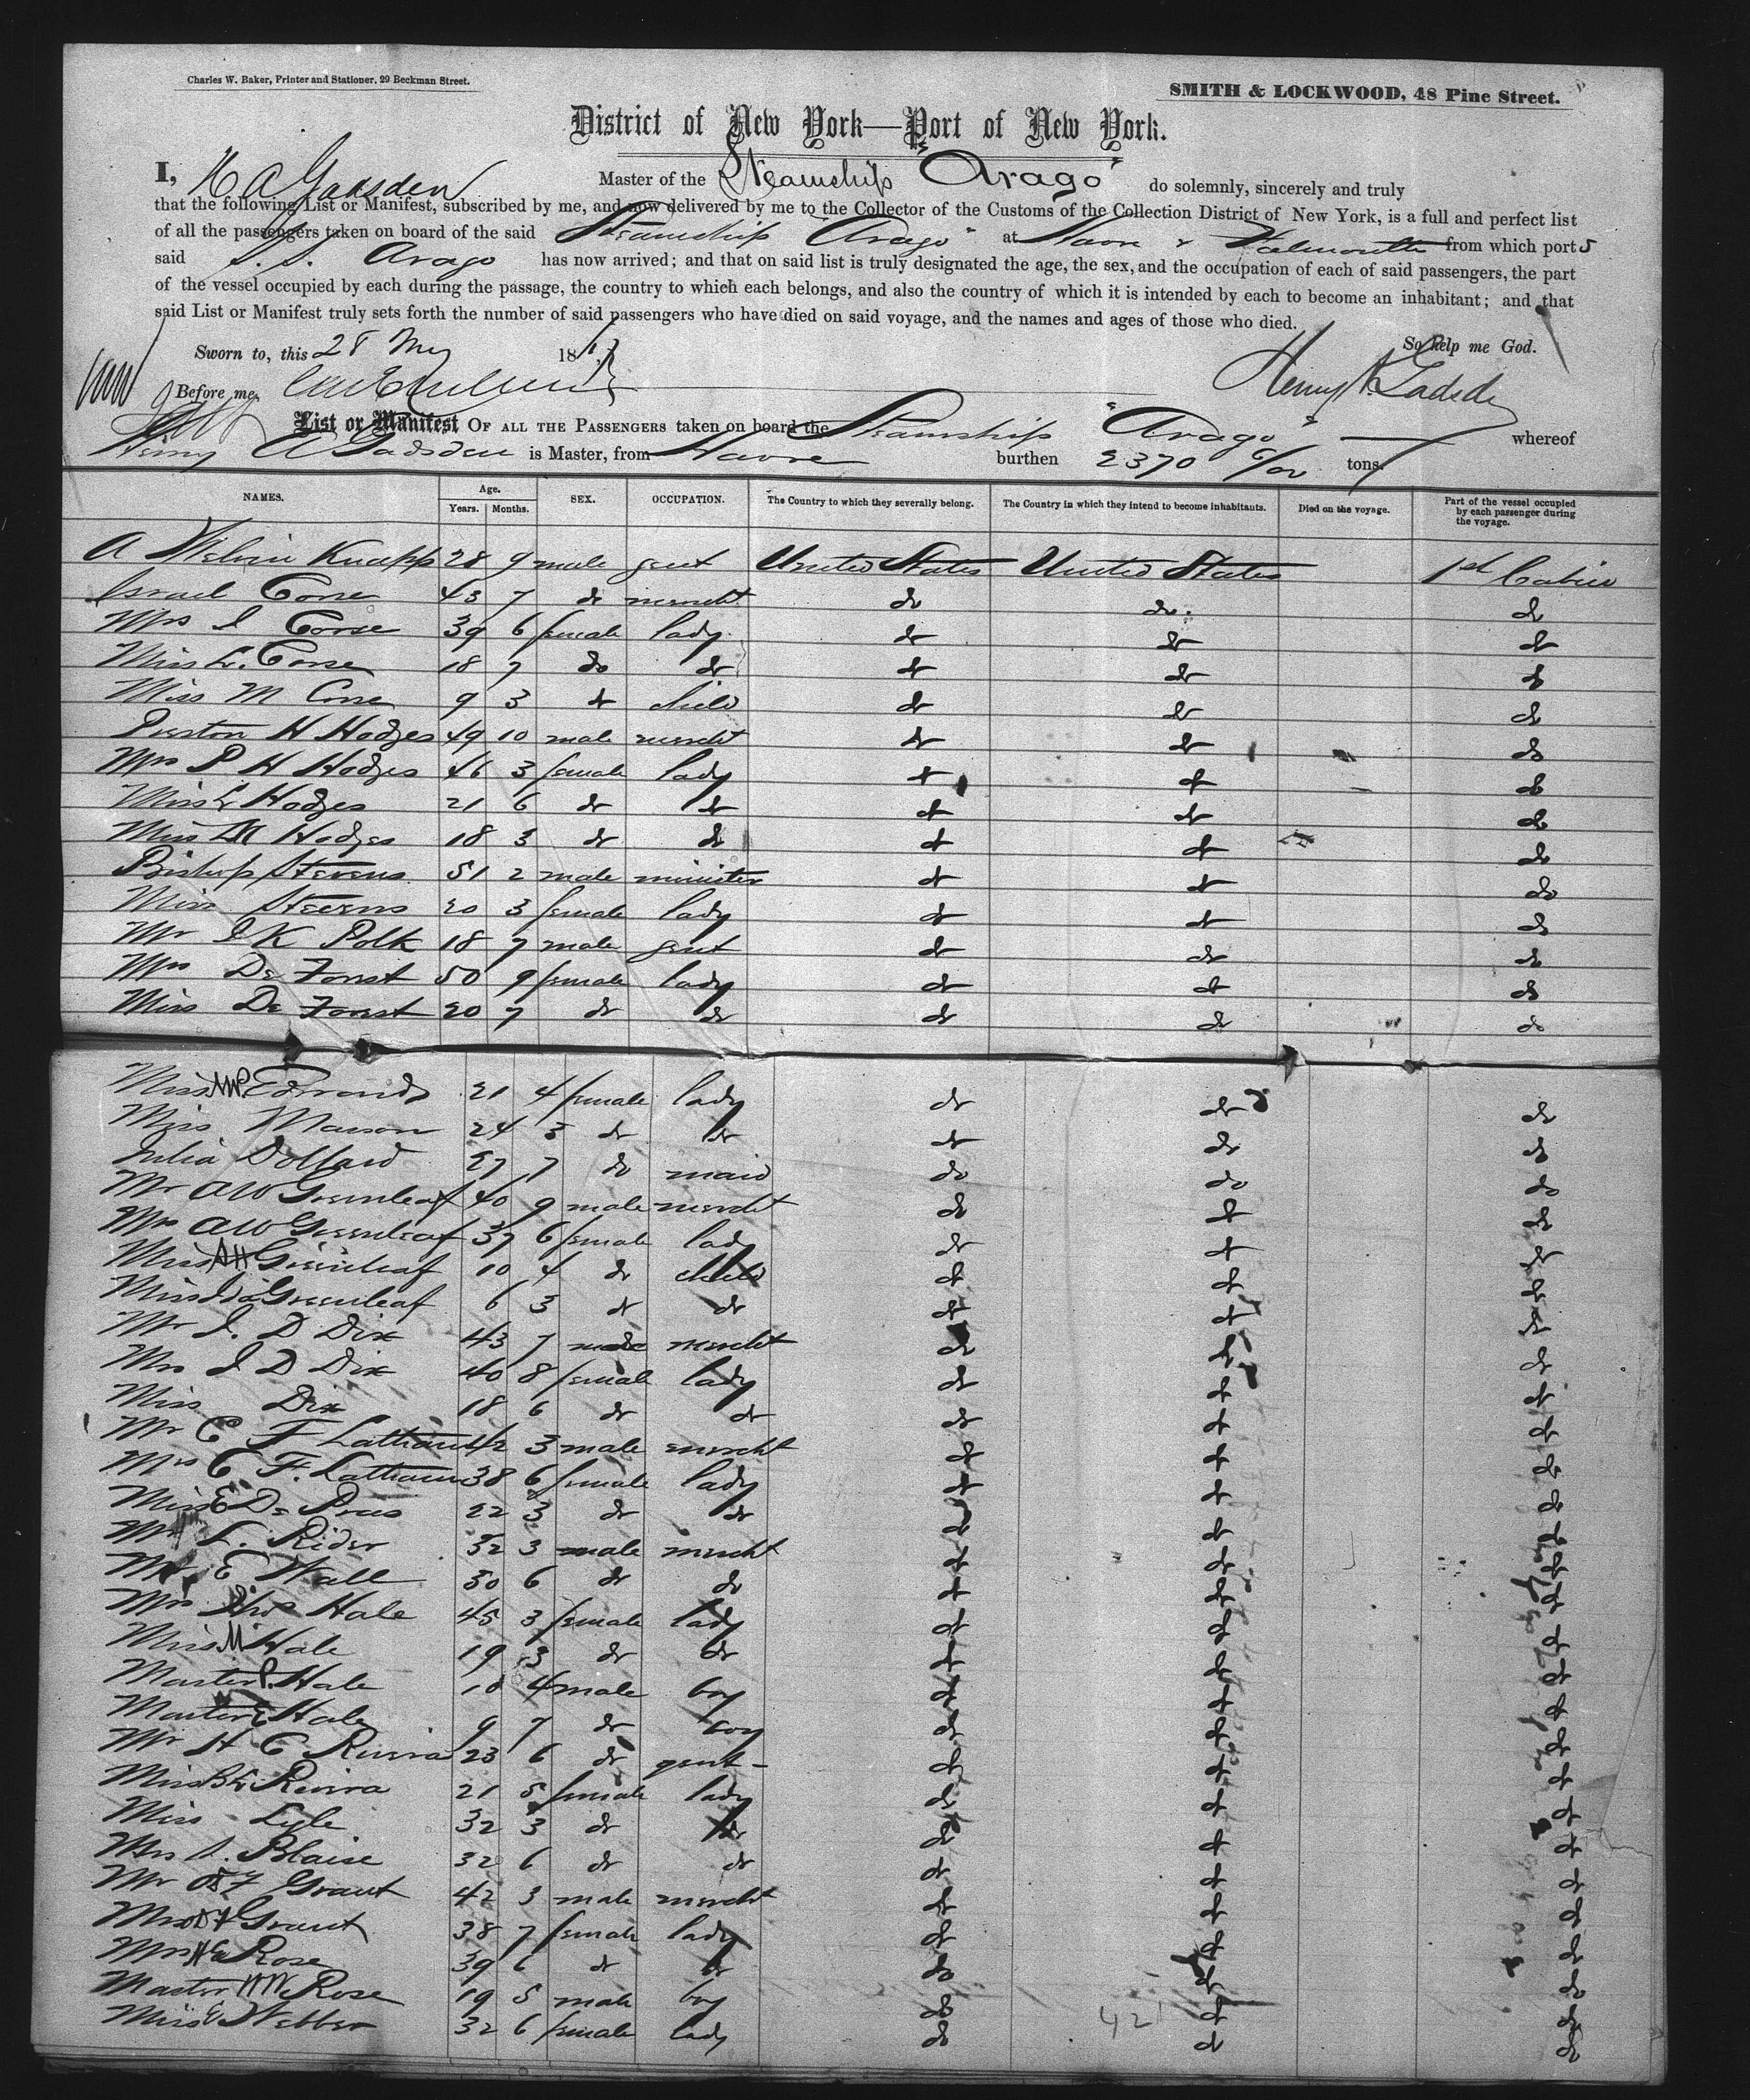 Charles W. Baker, Printer and Stationer, 29 Beekman Street.
SMITH & LOCKWOOD, 48 Pine Street.
District of New York—Port of New York.
I, H A Gadsden Master of the Steamship "Arago" do solemnly, sincerely and truly
that the following List or Manifest, subscribed by me, and now delivered by me to the Collector of the Customs of the Collection District of New York, is a full and perfect list
of all the passengers taken on board of the said Steamship "Arago" at Havre & Falmouth from which ports
said S.S. Arago has now arrived; and that on said list is truly designated the age, the sex, and the occupation of each of said passengers, the part
of the vessel occupied by each during the passage, the country to which each belongs, and also the country of which it is intended by each to become an inhabitant; and that
said List or Manifest truly sets forth the number of said passengers who have died on said voyage, and the names and ages of those who died.
So help me God.
Sworn to, this 28 May 186
Henry A. Gadsden
Before me,
List or Manifest OF ALL THE PASSENGERS taken on board the Steamship "Arago" whereof
Henry A Gadsden is Master, from Havre burthen 2370 tons.
NAMES. Age. Years. Months. SEX. OCCUPATION. The Country to which they severally belong. The Country in which they intend to become inhabitants. Died on the voyage. Part of the vessel occupied by each passenger during the voyage.
A Knapp 28 9 male gent United States United States 1st Cabin
Israel Corse 43 7 do mercht do do do
Mrs I Corse 39 6 female lady do do do
Miss L. Corse 18 7 do do do do do
Miss M Corse 9 3 do child do do do
Preston H Hodges 49 10 male mercht do do do
Mrs P H Hodges 46 3 female lady do do do
Miss L Hodges 21 6 do do do do do
Miss M Hodges 18 3 do do do do do
Bishop Stevens 51 2 male minister do do do
Miss Stevens 20 3 female lady do do do
Mr I K Polk 18 7 male gent do do do
Mrs De Forest 50 9 female lady do do do
Miss De Forest 20 7 do do do do do
Miss Edmonds 21 4 female lady do do do
Miss Manson 24 3 do do do do do
Julia Dollard 27 7 do maid do do do
Mr A W Greenleaf 40 9 male mercht do do do
Mrs A W Greenleaf 37 6 female lady do do do
Miss A H Greenleaf 10 4 do child do do do
Miss Ida Greenleaf 6 3 do do do do do
Mr I. D Dix 43 7 male mercht do do do
Mrs I D Dix 40 8 female lady do do do
Miss Dix 18 6 do do do do do
Mr C F Latham 42 3 male mercht do do do
Mrs C F. Latham 38 6 female lady do do do
Miss E De 22 3 do do do do do
Mr L. Rider 32 3 male mercht do do do
Mr E Wall 30 6 do do do do do
Mrs Hale 45 3 female lady do do do
Miss M Hale 19 3 do do do do do
Master P. Hale 10 4 male boy do do do
Master E Hale 9 7 do boy do do do
Mr H C Rivera 23 6 do gent do do do
Miss Rivera 21 5 female lady do do do
Miss Lyle 32 3 do do do do do
Mrs S. Blaise 32 6 do do do do do
Mr Grant 42 3 male mercht do do do
Mrs Grant 38 7 female lady do do do
Mrs Rose 39 6 do do do do do
Master W W Rose 19 5 male boy do do do
Miss Webber 32 6 female lady do do do
42